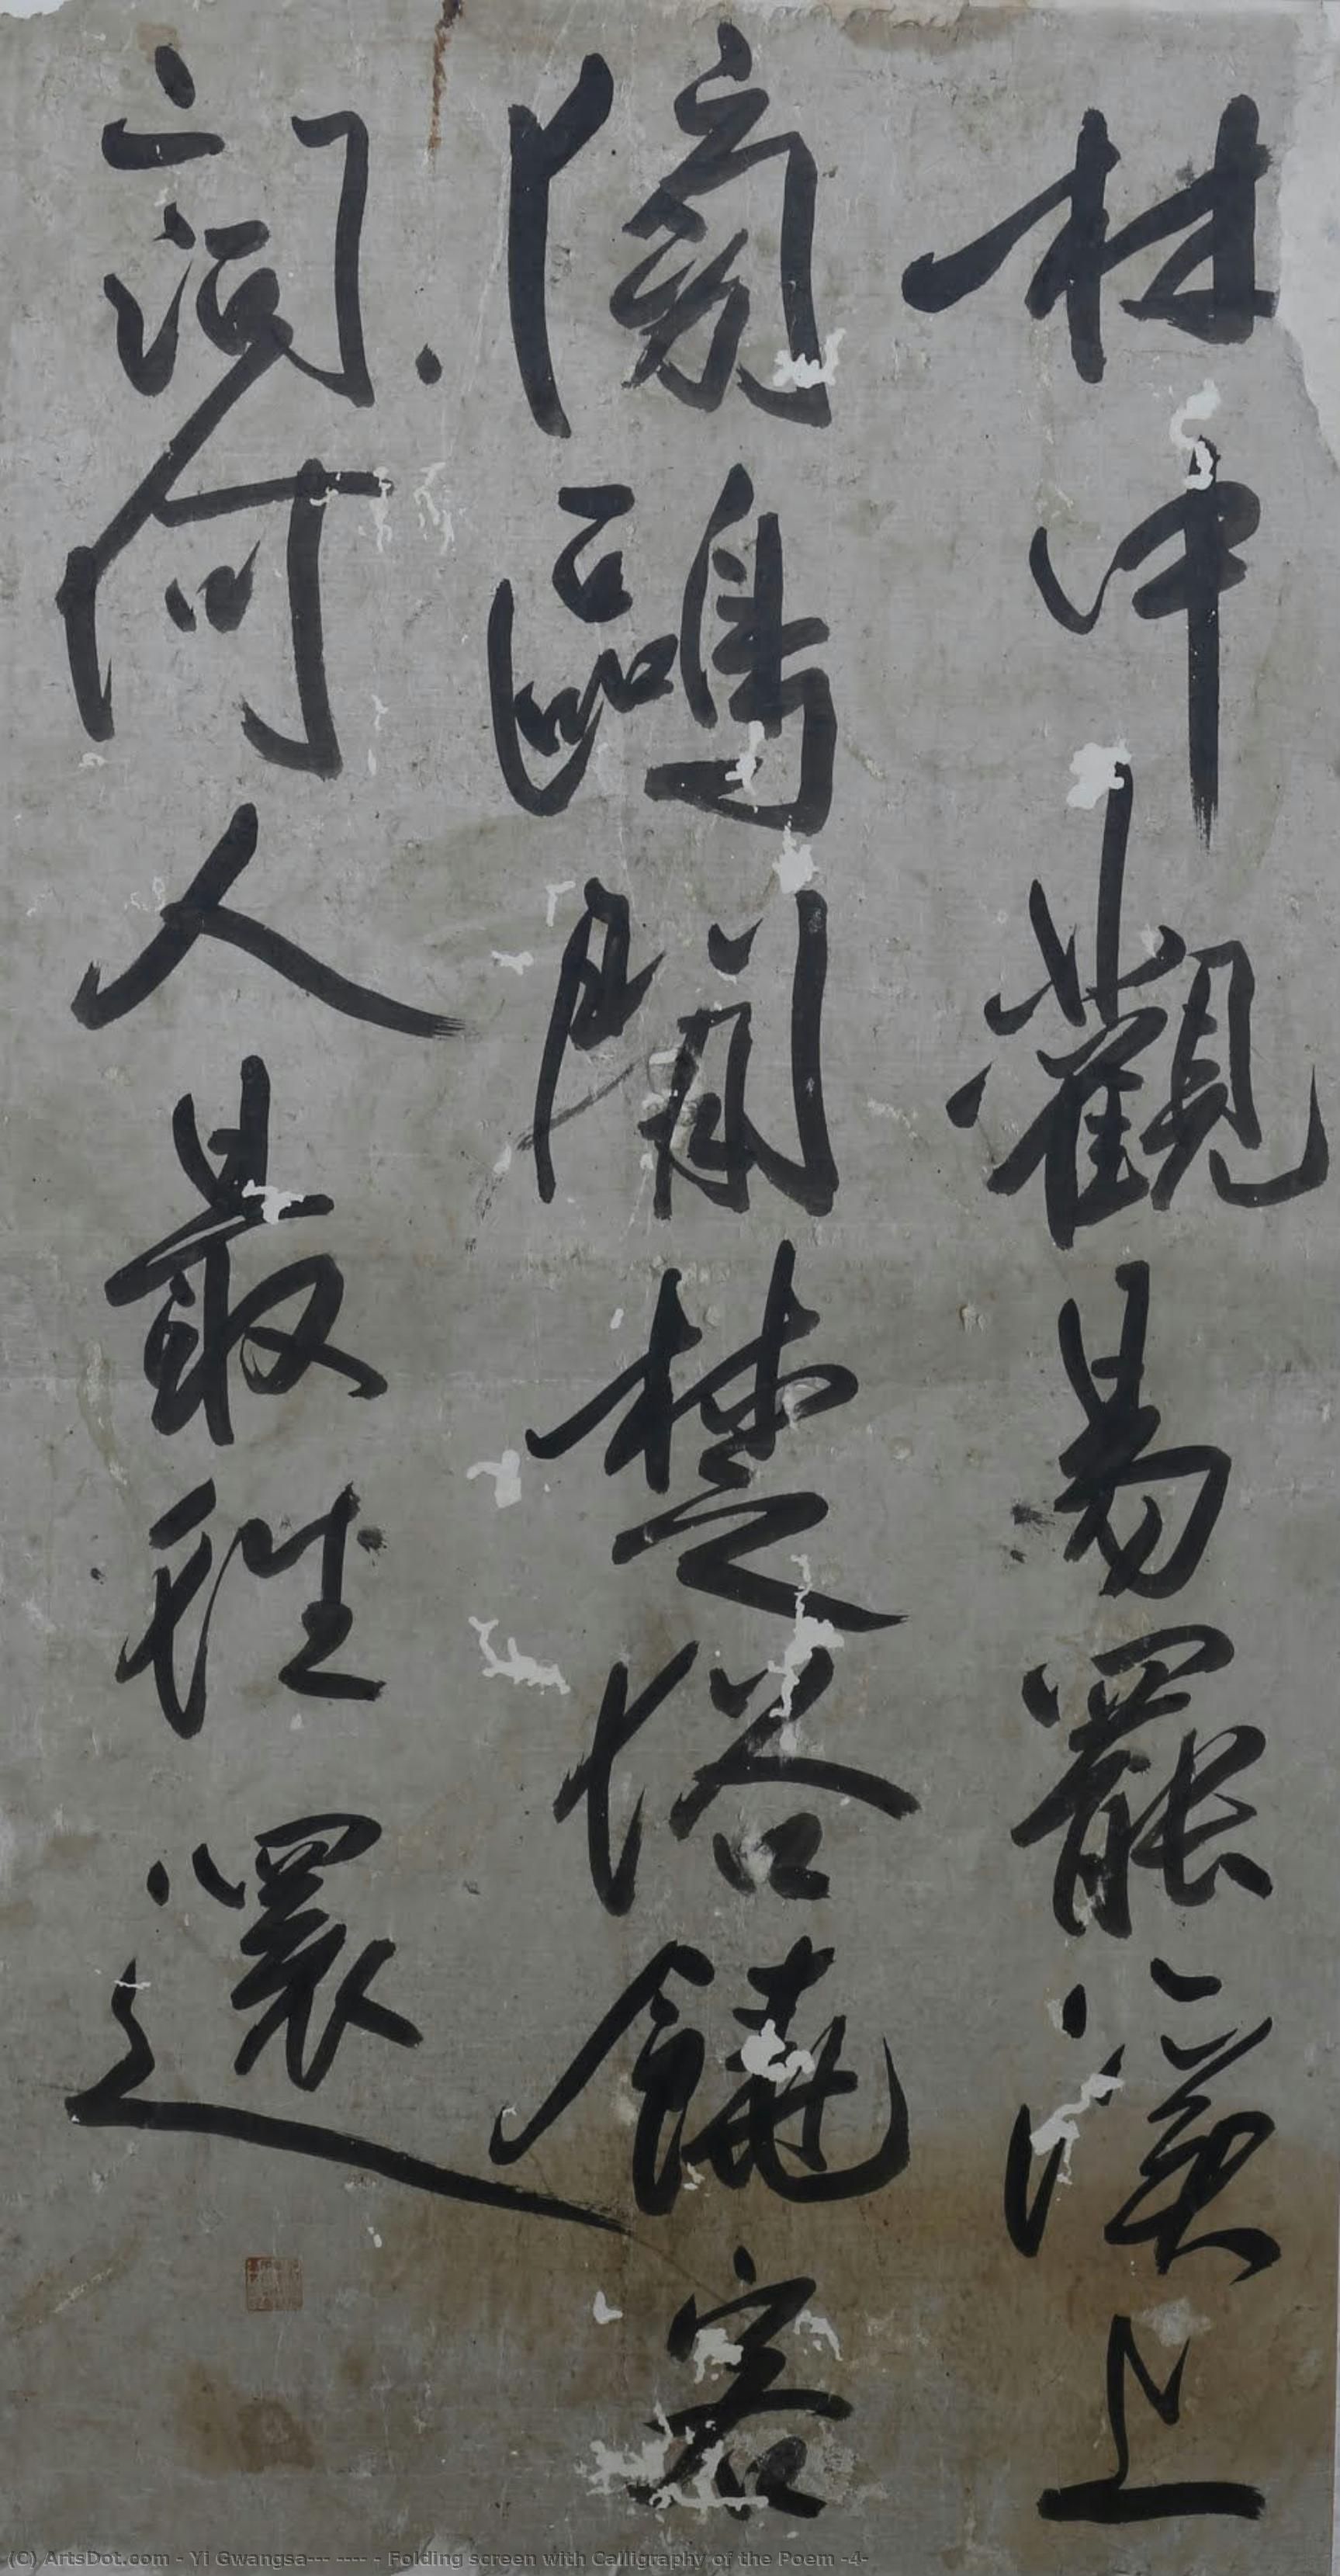 林中觀易罷溪上
鷗閒楚俗饒客
詞何人最往還
(C) ArtsDot.com - Yi Gwangsa--- ---- - Folding screen with Calligraphy of the Poem -4-